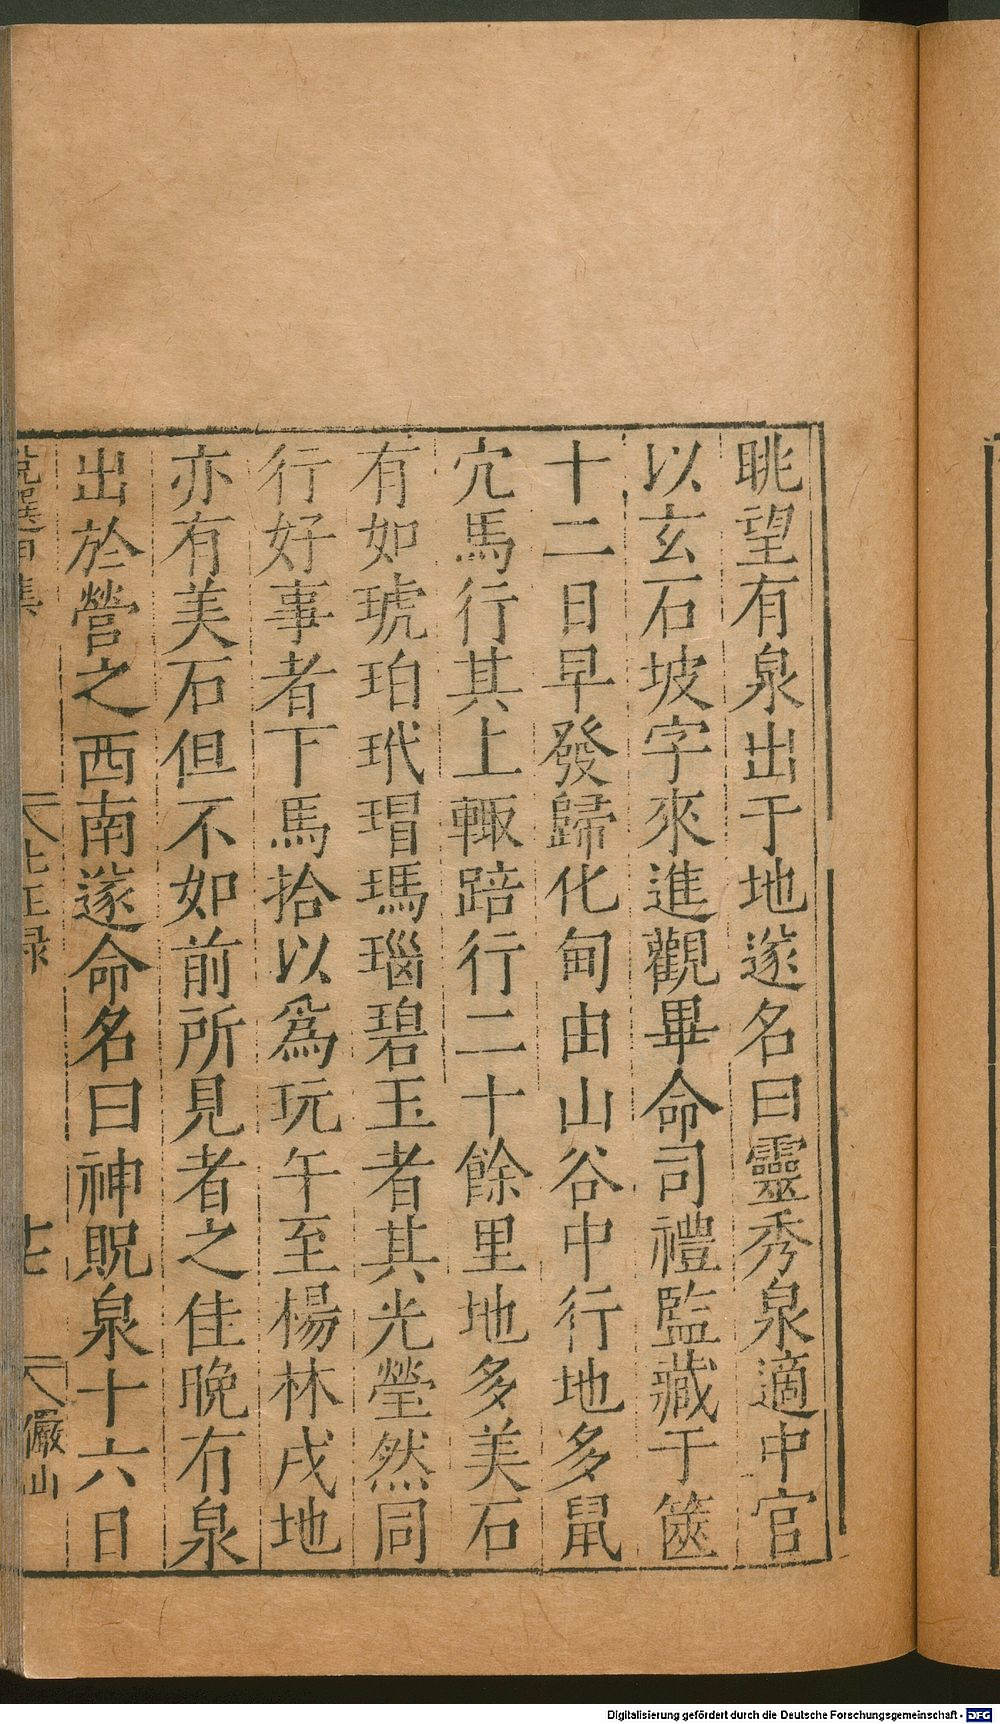 眺望有泉出于地遂名曰靈秀泉適中官
以玄石坡字來進觀畢命司禮監藏于篋
十二日早發歸化甸由山谷中行地多鼠
穴馬行其上輙踣行二十餘里地多美石
有如琥珀玳瑁瑪瑙碧玉者其光瑩然同
行好事者下馬拾以爲玩午至楊林戍地
亦有美石但不如前所見者之佳晚有泉
出於營之西南遂命名曰神貺泉十六日
說選甲集
北征録
十七
儼山
Digitalisierung gefördert durch die Deutsche Forschungsgemeinschaft - DFG